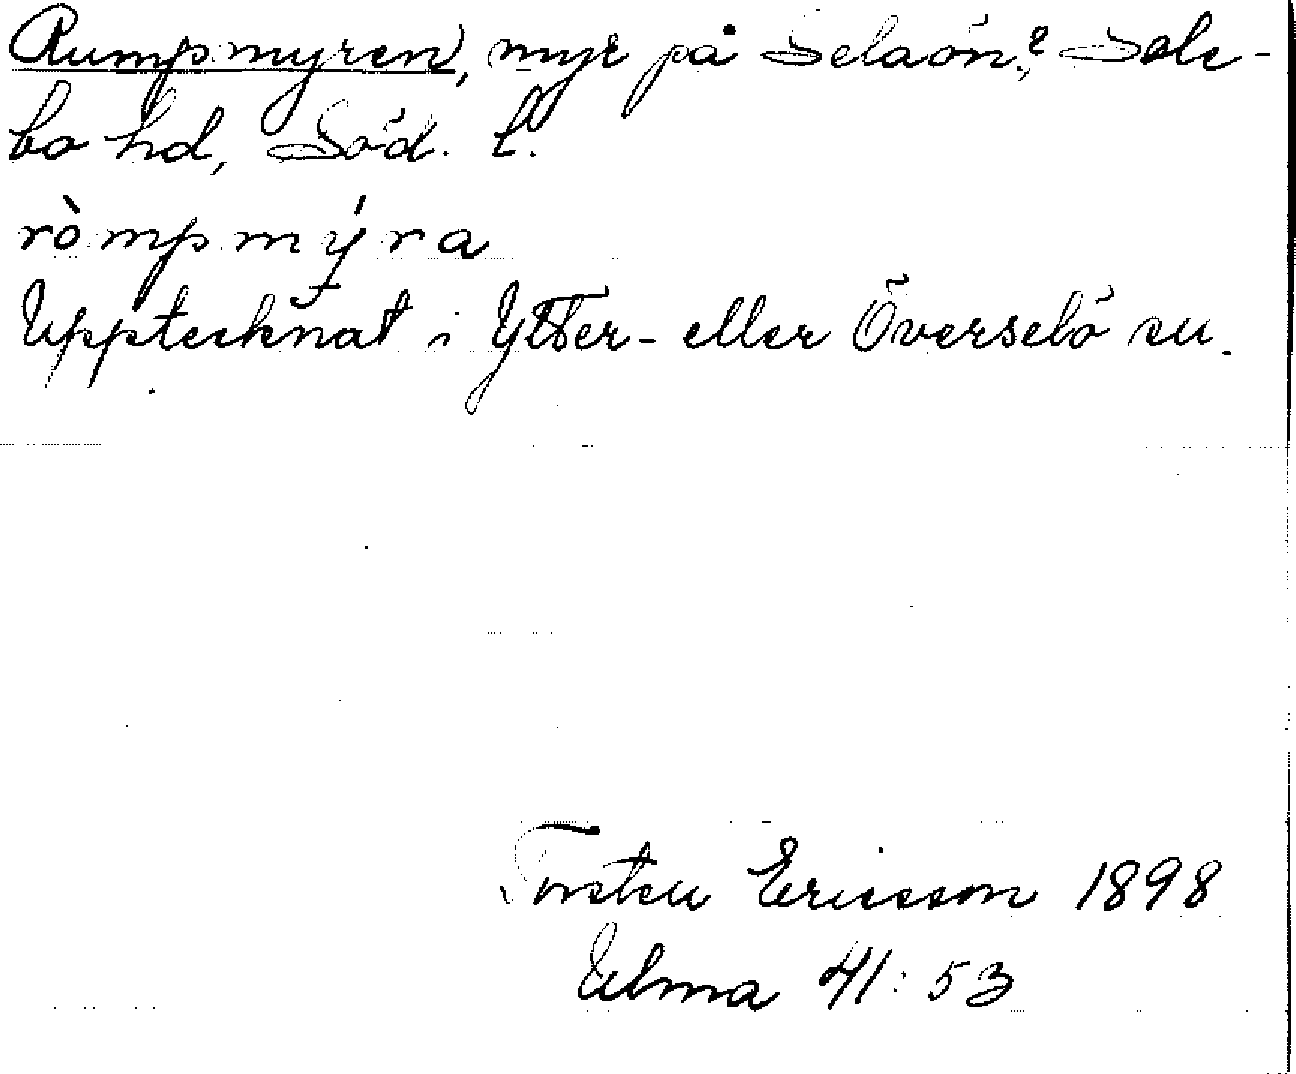 Rumpmyren, myr på Selaön?, Sele-
bo hd, Söd. l.
ròmpmýra
Upptecknat i Ytter- eller Överselö sn.
Torsten Ericsson 1898
Ulma 41:53